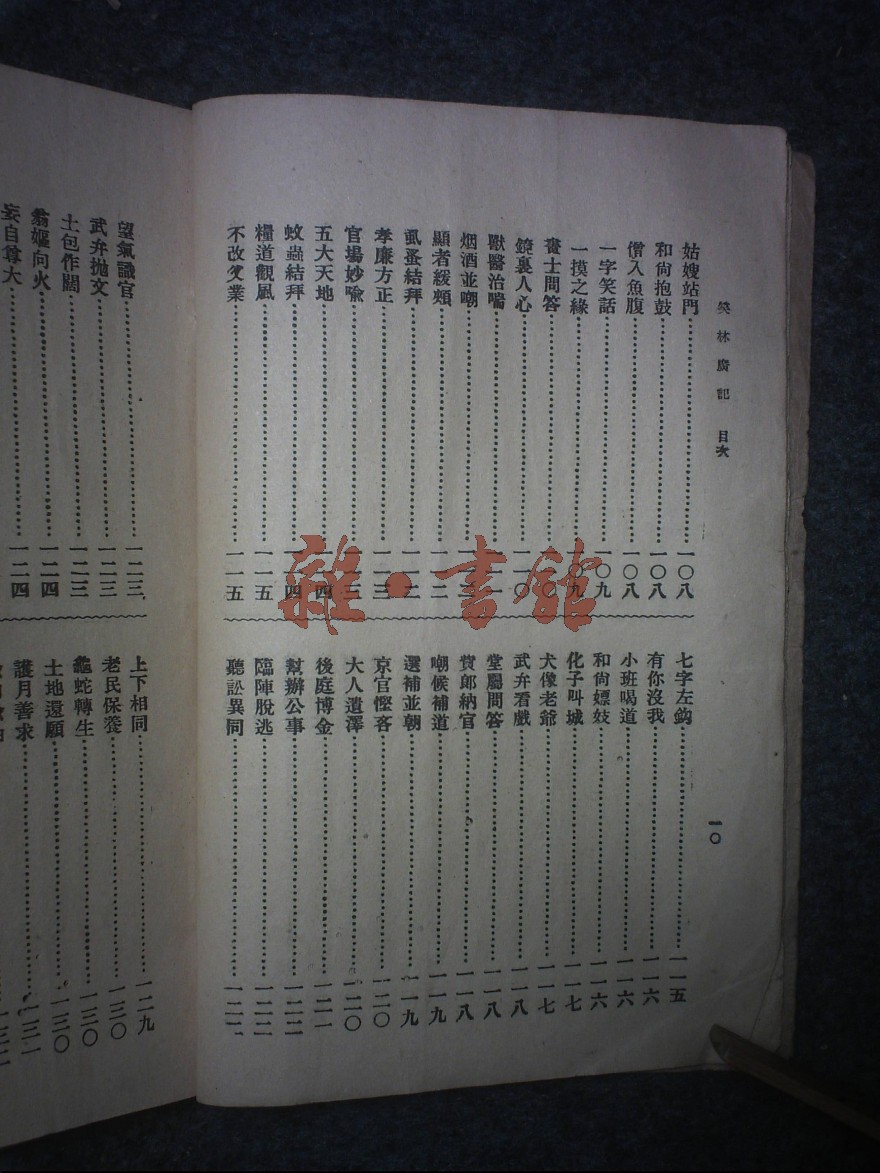 笑林廣記 目次
一〇
姑嫂站門……一〇八
和尙抱鼓……一〇八
僧入魚腹……一〇八
一字笑話……一〇九
一摸之緣……一〇九
畫士問答……
鏡裏人心……一一〇
獸醫治喘……
烟酒並嘲……
顯者緩頰……一一二
虱蚤結拜……一一二
孝廉方正……一一三
官場妙喩……
五大天地……一一四
蚊蟲結拜……一一四
糧道觀風……一一五
不改父業……一一五
七字左鈎……一一五
有你沒我……一一六
小班喝道……一一六
和尙嫖妓……一一六
化子叫城……一一七
犬像老爺……一一七
武弁看戲……一一八
堂屬問答……一一八
貲郞納官……一一八
嘲候補道……一一九
選補並朝……一一九
京官慳吝……一二〇
大人遺澤……一二〇
後庭博金……一二一
幫辦公事……一二二
臨陣脫逃……一二二
聽訟異同……一二二
望氣識官……一二三
武弁拋文……一二三
土包作闊……一二三
翁嫗向火……一二四
妄自尊大……一二四
上下相同……一二九
老民保養……一三〇
龜蛇轉生……一三〇
土地還願……一三〇
護月善求……一三一
雜·書館